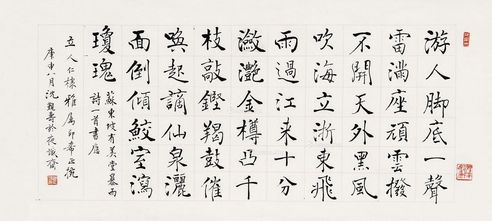 游人脚底一聲
雷滿座頑雲撥
不開天外黑風
吹海立浙東飛
雨過江來十分
瀲灩金樽凸千
枝敲鏗羯鼓催
喚起謫仙泉灑
面倒傾鮫室瀉
瓊瑰
蘇東坡有美堂暮雨
詩一首書應
立人仁棣雅屬即希正腕
庚申八月沈覲壽於